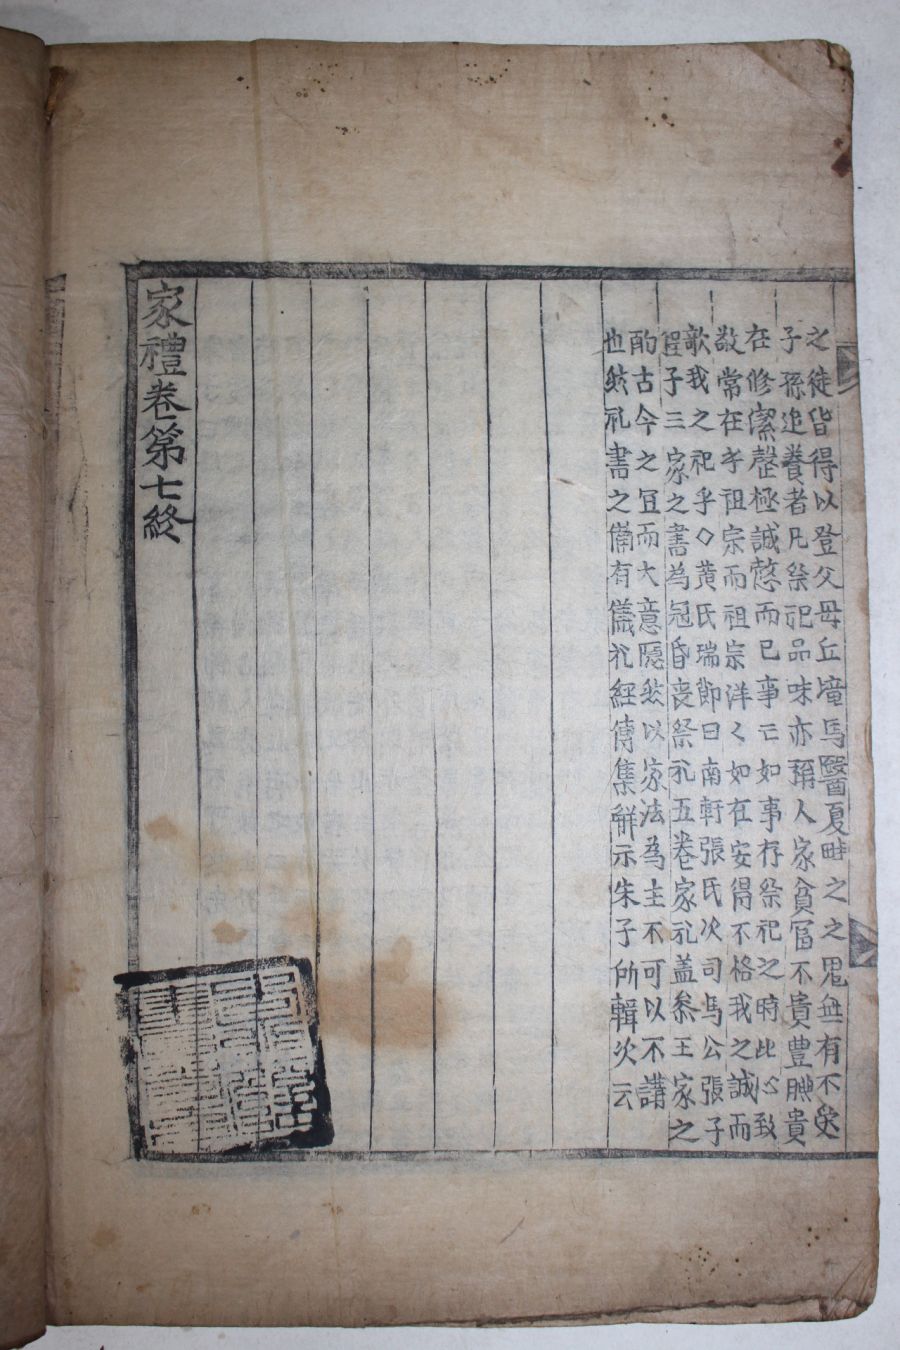 之徒皆得以登父母丘壠馬醫夏畦之之鬼無有不受
子孫追養者凡祭祀品味亦稱人家貧冨不貴豊腆貴
在修潔罄極誠慤而已事亡如事存祭祀之時此心致
敬常在乎祖宗而祖宗洋〻如在安得不格我之誠而
歆我之祀乎○黄氏瑞節曰南軒張氏次司馬公張子
程子三家之書為冠昏喪祭礼五卷家礼盖叅王家之
酌古今之宜而大意隠然以家法為主不可以不講
也然礼書之備有儀礼經傳集觧示朱子所輯次云
家禮卷第七終